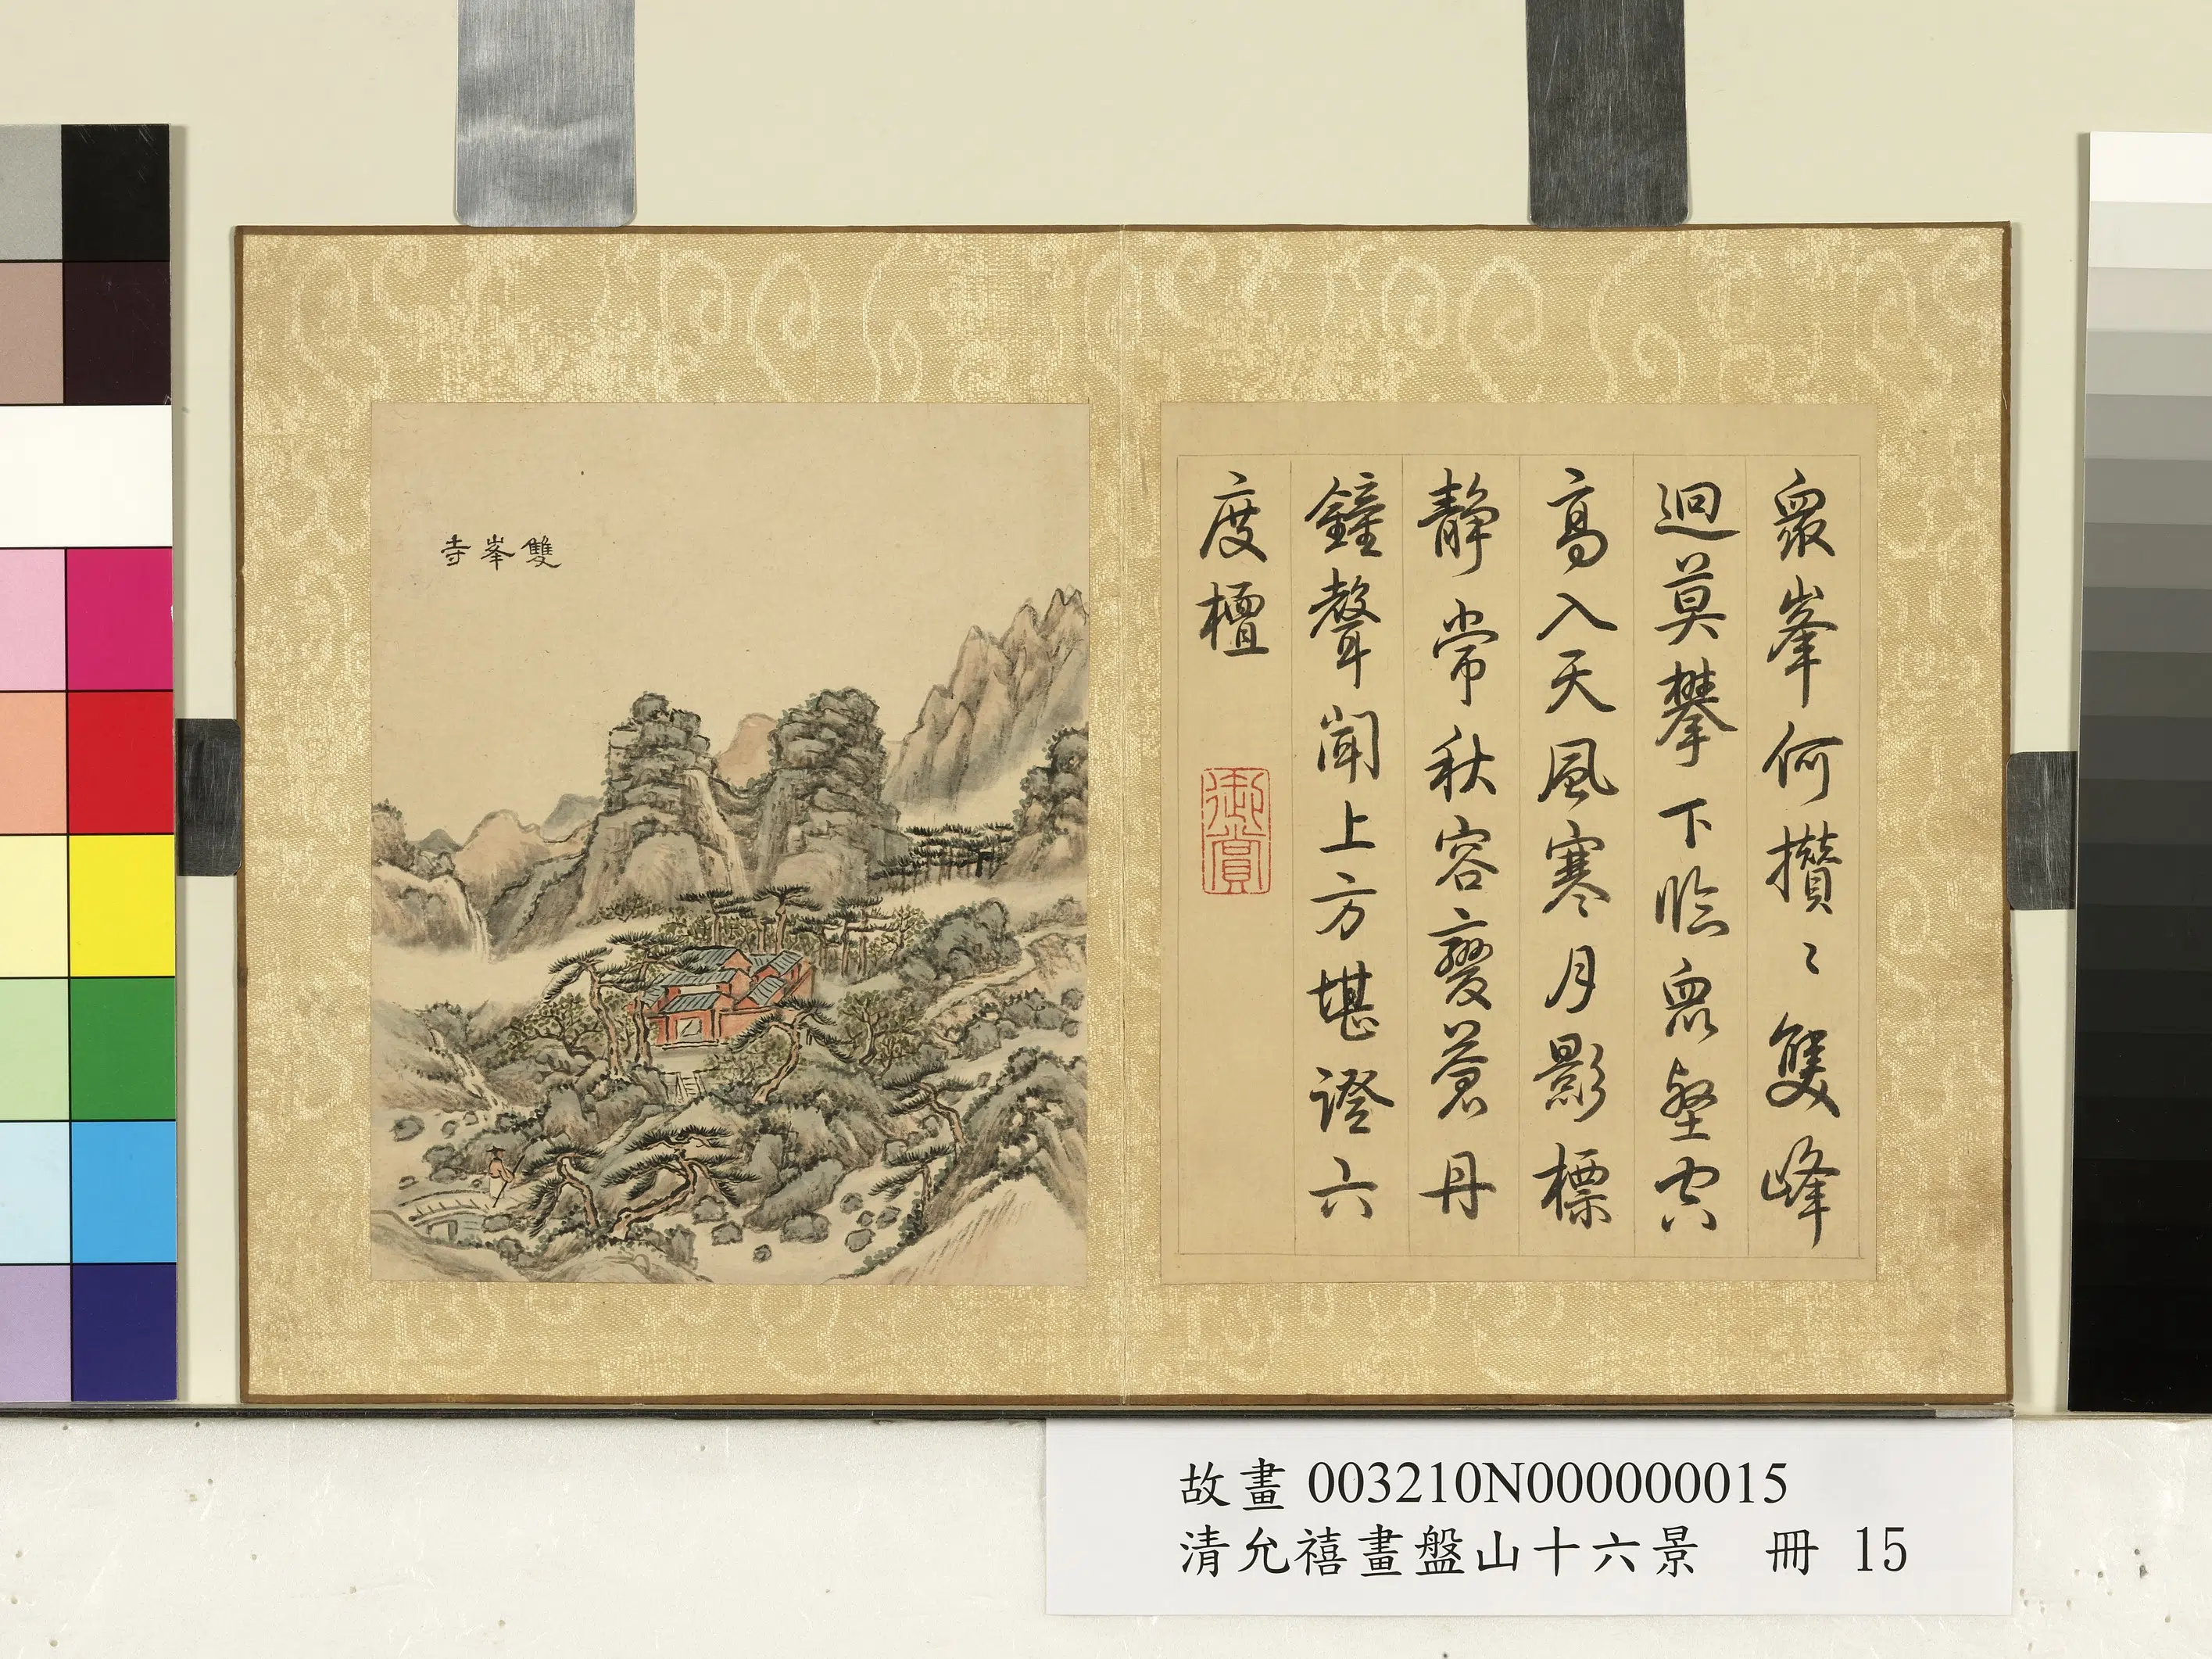 眾峯何攢〻雙峰
迥莫攀下臨眾壑空
高入天風寒月影標
靜常秋容變蒼丹
鐘聲聞上方堪證六
度檀
御賞
雙峯寺
故畫 003210N000000015
清允禧畫盤山十六景 冊 15